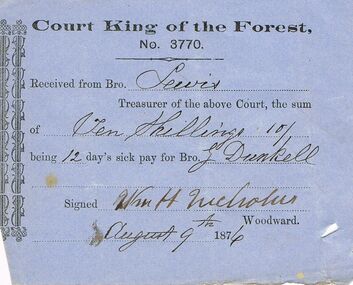 Court King of the Forest,
No. 3770.
Received from Bro. Lewis
Treasurer of the above Court, the sum
of Ten Shillings 10/
being 12 day's sick pay for Bro. Dunkell
Signed Wm H Nicholus
Woodward.
August 9th 1876